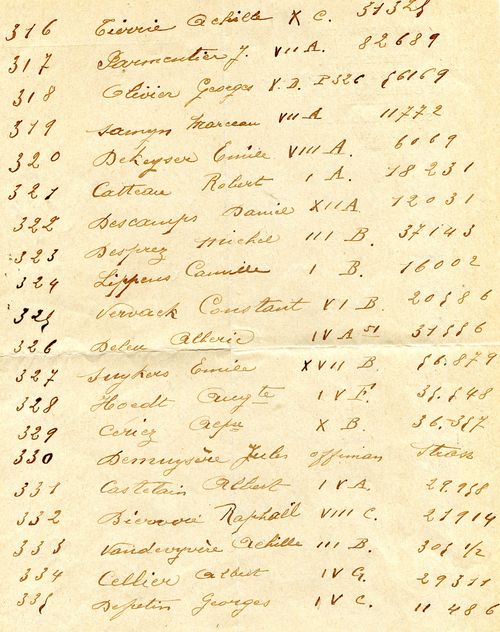 316 Tierrie Achille X C. 31325
317 Parmentier J. VII A. 82689
318 Olivier Georges V. D. P326 56169
319 Samyn Marceau VII A 11772
320 Dekeyser Emile VIII A. 6069
321 Catteau Robert I A. 18231
322 Descamps Daniel XII A 12031
323 Desprez Michel III B. 37143
324 Lippens Camille I B. 16002
325 Vervack Constant VI B. 20586
326 Deleu Alberic IV A 31556
327 Snykers Emile XVII B 56.879
328 Hoedt Aug te IV F. 35.548
329 X B. 36.357
330 Demuysère Jules
331 Castelain Albert IV A. 29.958
332 Raphaël VIII C. 21914
333 Vandevyvère Achille III B. 305 1/2
334 Cellier Albert IV G. 29311
335 Depetin Georges IV C. 11 486